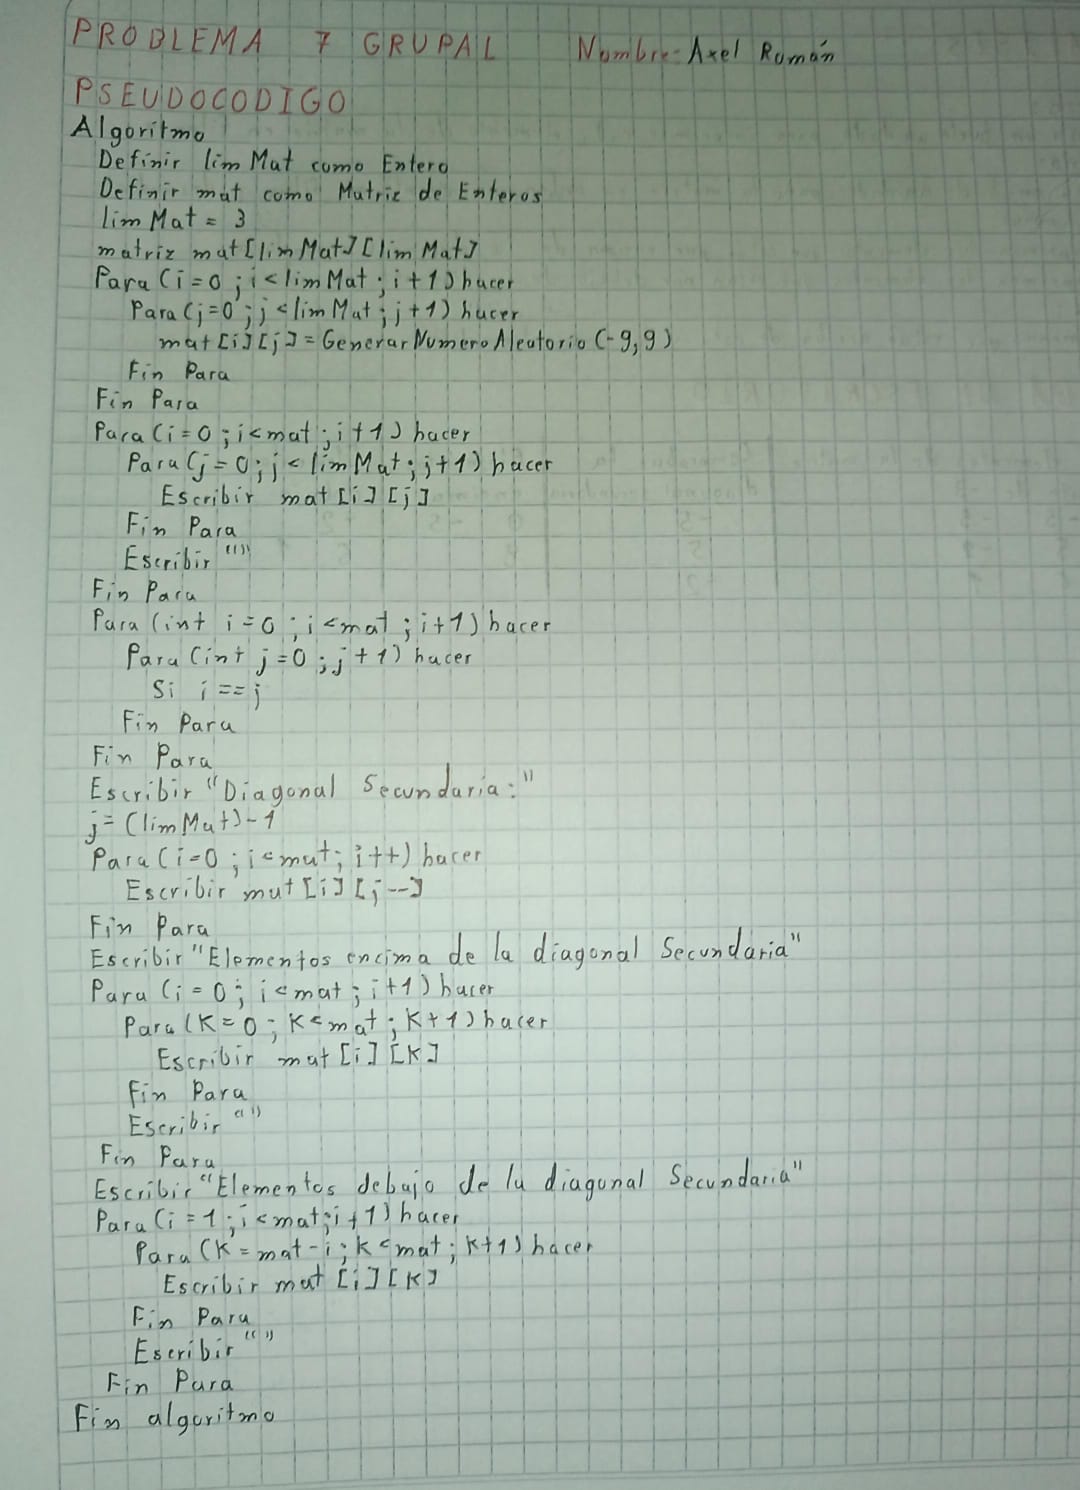 PROBLEMA 7 GRUPAL Nombre- Axel Román
PSEUDOCODIGO
Algoritmo
Definir lim Mat como Entero
Definir mat como Matriz de Enteros
lim Mat = 3
matriz mat[lim Mat][lim Mat]
Para (i=0 ; i<lim Mat ; i+1) hacer
Para (j=0 ; j<lim Mat ; j+1) hacer
mat[i][j] = Generar Numero Aleatorio (-9,9)
Fin Para
Fin Para
Para (i=0 ; i<mat ; i+1) hacer
Para (j=0 ; j<lim Mat ; j+1) hacer
Escribir mat[i][j]
Fin Para
Escribir " "
Fin Para
Para (int i=0 ; i<mat ; i+1) hacer
Para (int j=0 ; j+1) hacer
Si i==j
Fin Para
Fin Para
Escribir "Diagonal Secundaria:"
j= (lim Mat)-1
Para (i=0 ; i<mat ; i++) hacer
Escribir mat[i][j--]
Fin Para
Escribir "Elementos encima de la diagonal Secundaria"
Para (i=0 ; i<mat ; i+1) hacer
Para (K=0 ; K<mat ; K+1) hacer
Escribir mat[i][K]
Fin Para
Escribir " "
Fin Para
Escribir "Elementos debajo de la diagonal Secundaria"
Para (i=1 ; i<mat ; i+1) hacer
Para (K=mat-i ; K<mat ; K+1) hacer
Escribir mat[i][K]
Fin Para
Escribir " "
Fin Para
Fin algoritmo